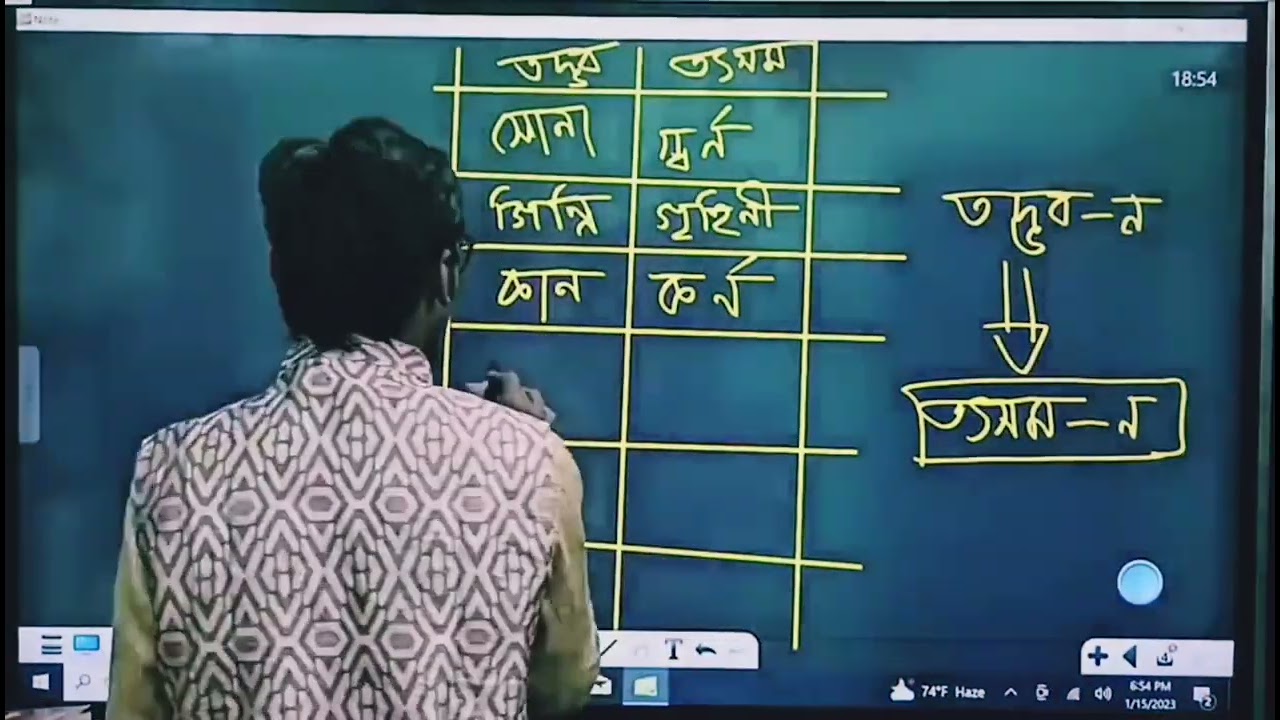 Note
18:54
তদ্ভব তৎসম
সোনা স্বর্ন
গিন্নি গৃহিনী
কান কর্ন
তদ্ভব – ন
তৎসম – ন
T
74°F Haze
6:54 PM
1/15/2023
2